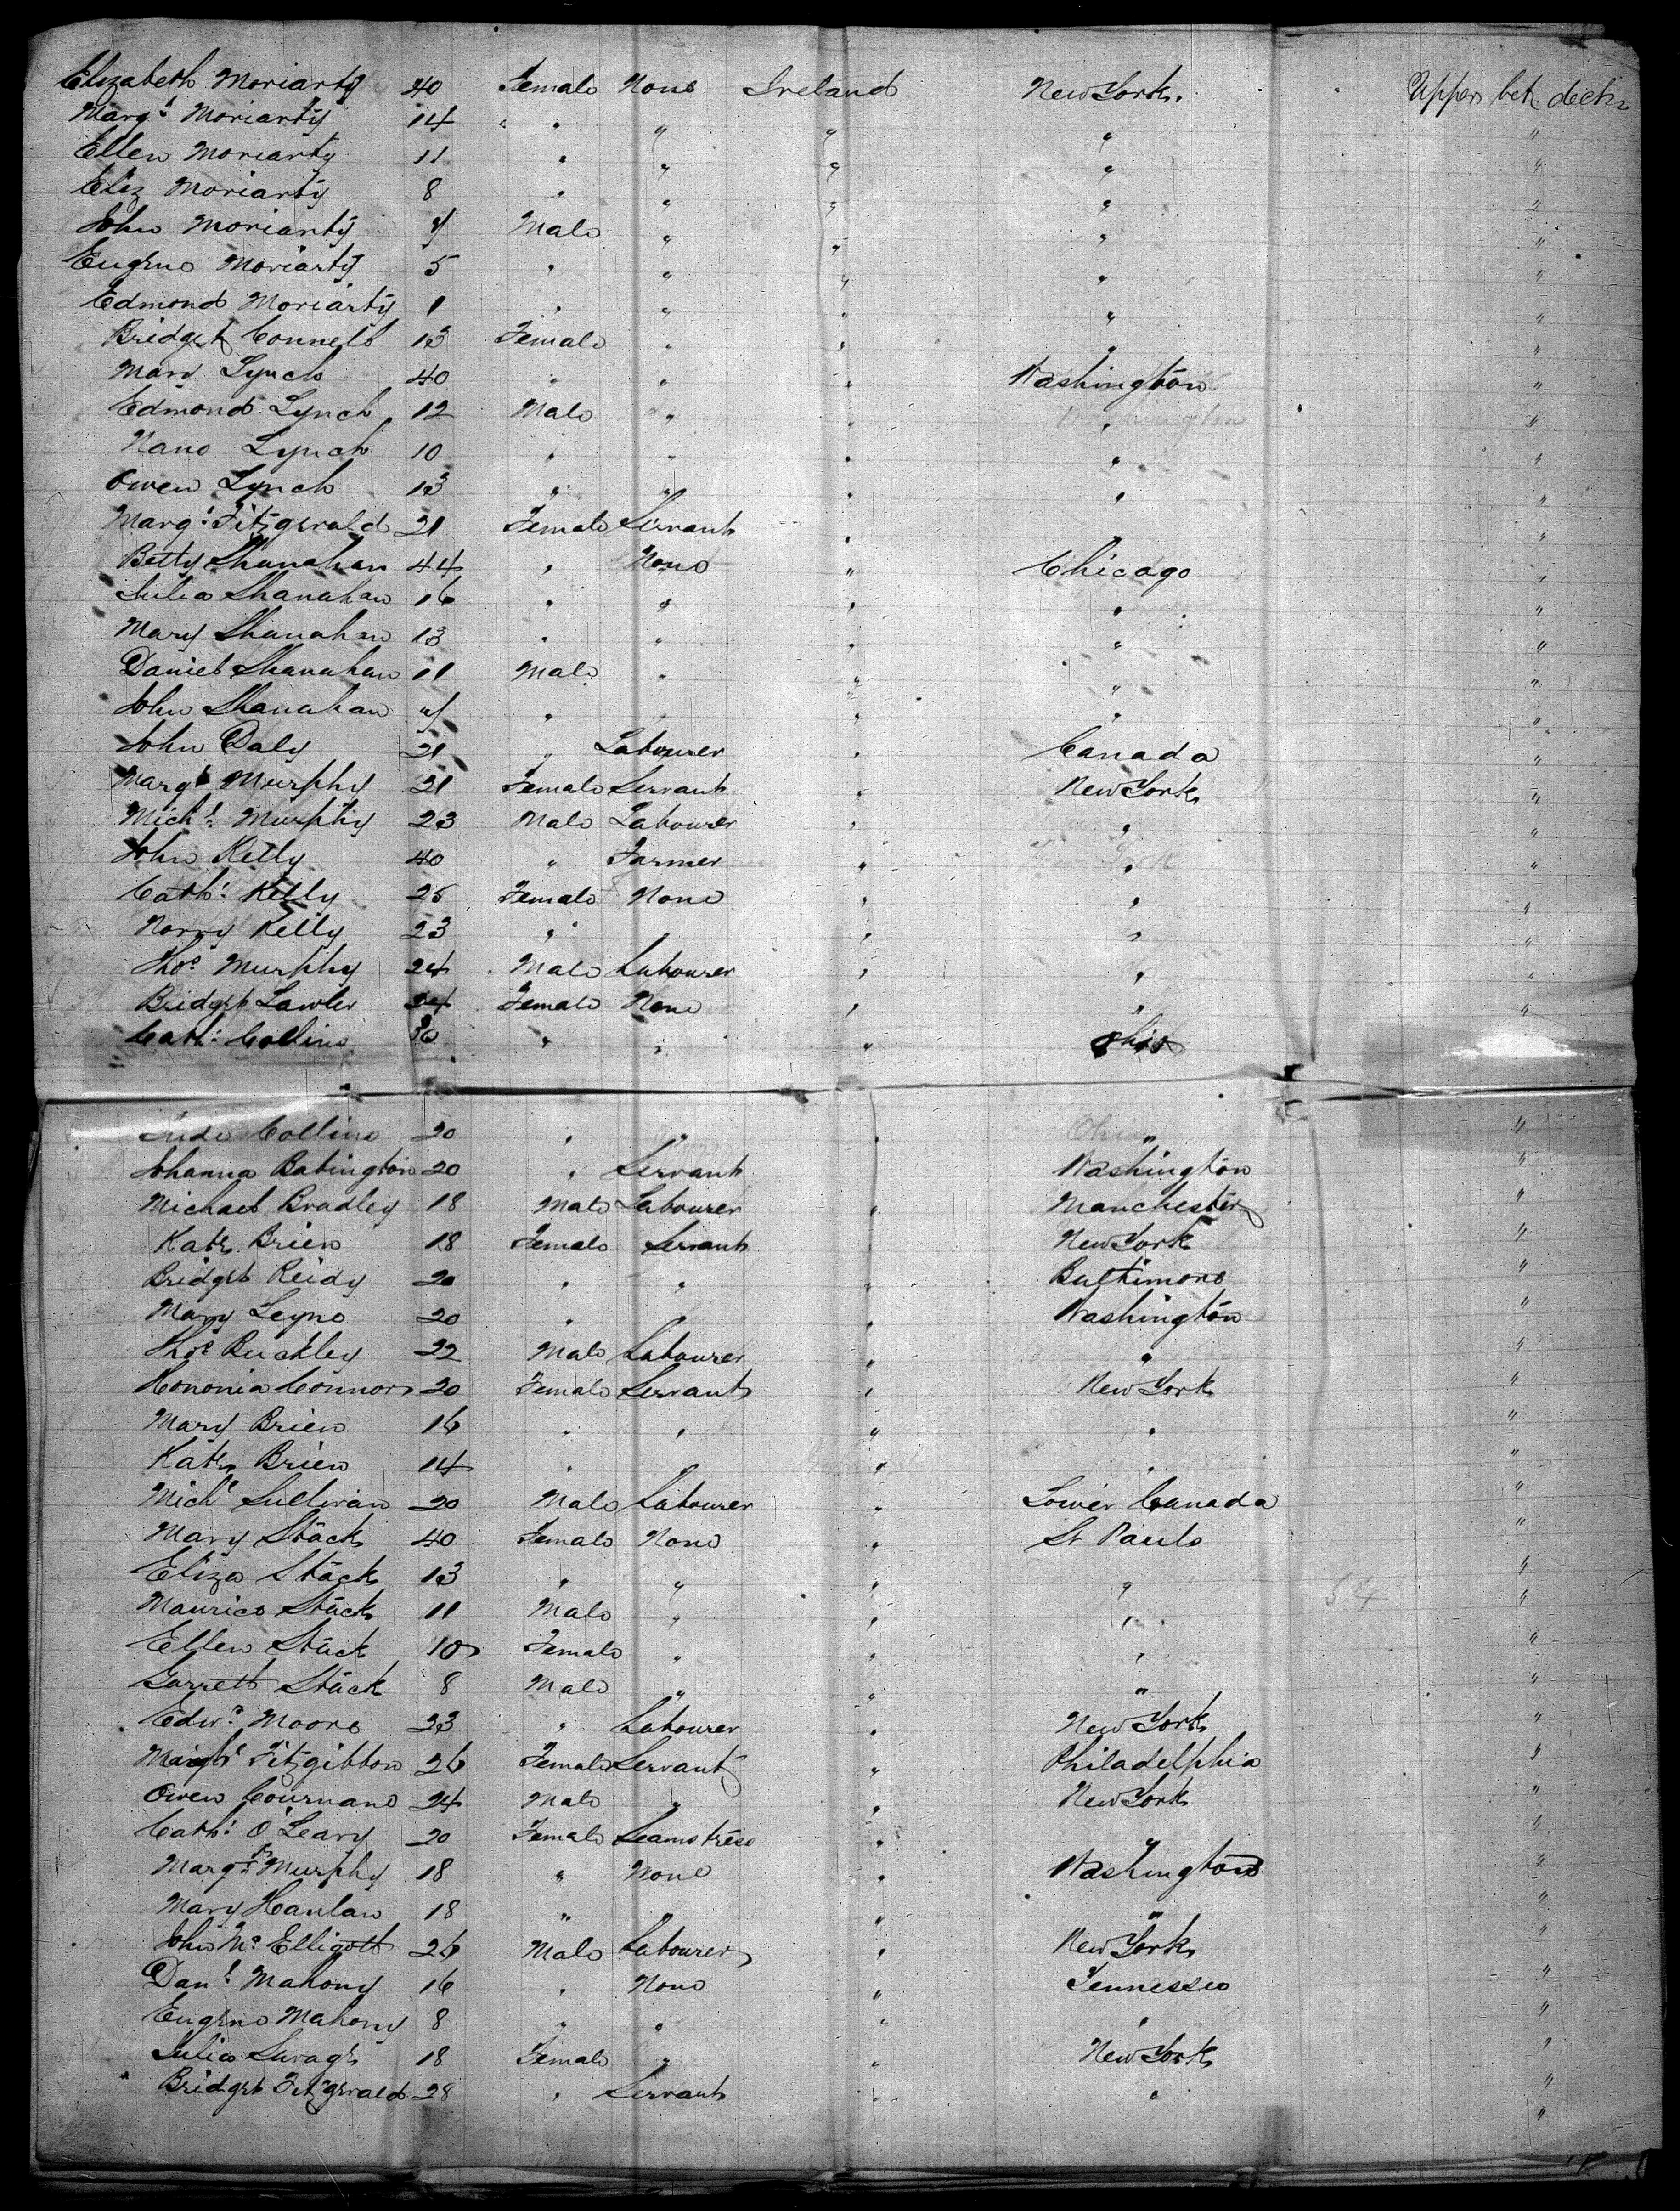 Elizabeth Moriarty 40 Female None Ireland New York. Upper bet. decks
Margt Moriarty 14 " " " " "
Ellen Moriarty 11 " " " " "
Eliz Moriarty 8 " " " " "
John Moriarty 4 Male " " " "
Eugene Moriarty 5 " " " " "
Edmond Moriarty 1 " " " " "
Bridget Connell 13 Female " " " "
Mary Lynch 40 " " " Washington "
Edmond Lynch 12 Male " " " "
Nano Lynch 10 " " " " "
Owen Lynch 13 " " " " "
Margt Fitzgerald 21 Female Servant " " "
Betty Shanahan 44 " None " Chicago "
Julia Shanahan 16 " " " " "
Mary Shanahan 13 " " " " "
Daniel Shanahan 11 Male " " " "
John Shanahan 4 " " " " "
John Daly 21 " Labourer " Canada "
Margt Murphy 21 Female Servant " New York "
Michl Murphy 23 Male Labourer " " "
John Kelly 40 " Farmer " " "
Cath: Kelly 25 Female None " " "
Norry Kelly 23 " " " " "
Thos Murphy 24 Male Labourer " " "
Bridget Lawler 24 Female None " " "
Cath: Collins 30 " " " Ohio
Collins 20 " " " " "
Johanna Babington 20 " Servant " Washington "
Michael Bradley 18 Male Labourer " Manchester "
Kate Brien 18 Female Servant " New York "
Bridget Reidy 20 " " " Baltimore "
Mary Leyne 20 " " " Washington "
Thos Buckley 22 Male Labourer " " "
Hononia Connor 20 Female Servant " New York "
Mary Brien 16 " " " " "
Kate Brien 14 " " " " "
Michl Sullivan 20 Male Labourer " Lower Canada "
Mary Stack 40 Female None " St Pauls "
Eliza Stack 13 " " " " "
Maurice Stack 11 Male " " " 54 "
Ellen Stack 10 Female " " " "
Garrett Stack 8 Male " " " "
Edwd Moore 23 " Labourer " New York "
Margt Fitzgibbon 26 Female Servant " Philadelphia "
Owen Cournane 24 Male " " New York "
Cath: O'Leary 20 Female Seamstress " " "
Margt Murphy 18 " None " Washington "
Mary Hanlan 18 " " " " "
John Mc Elligott 26 Male Labourer " New York "
Danl Mahony 16 " None " Tennessee "
Eugene Mahony 8 " " " " "
Julia Savage 18 Female " " New York "
Bridget Fitzgerald 28 " Servant " " "